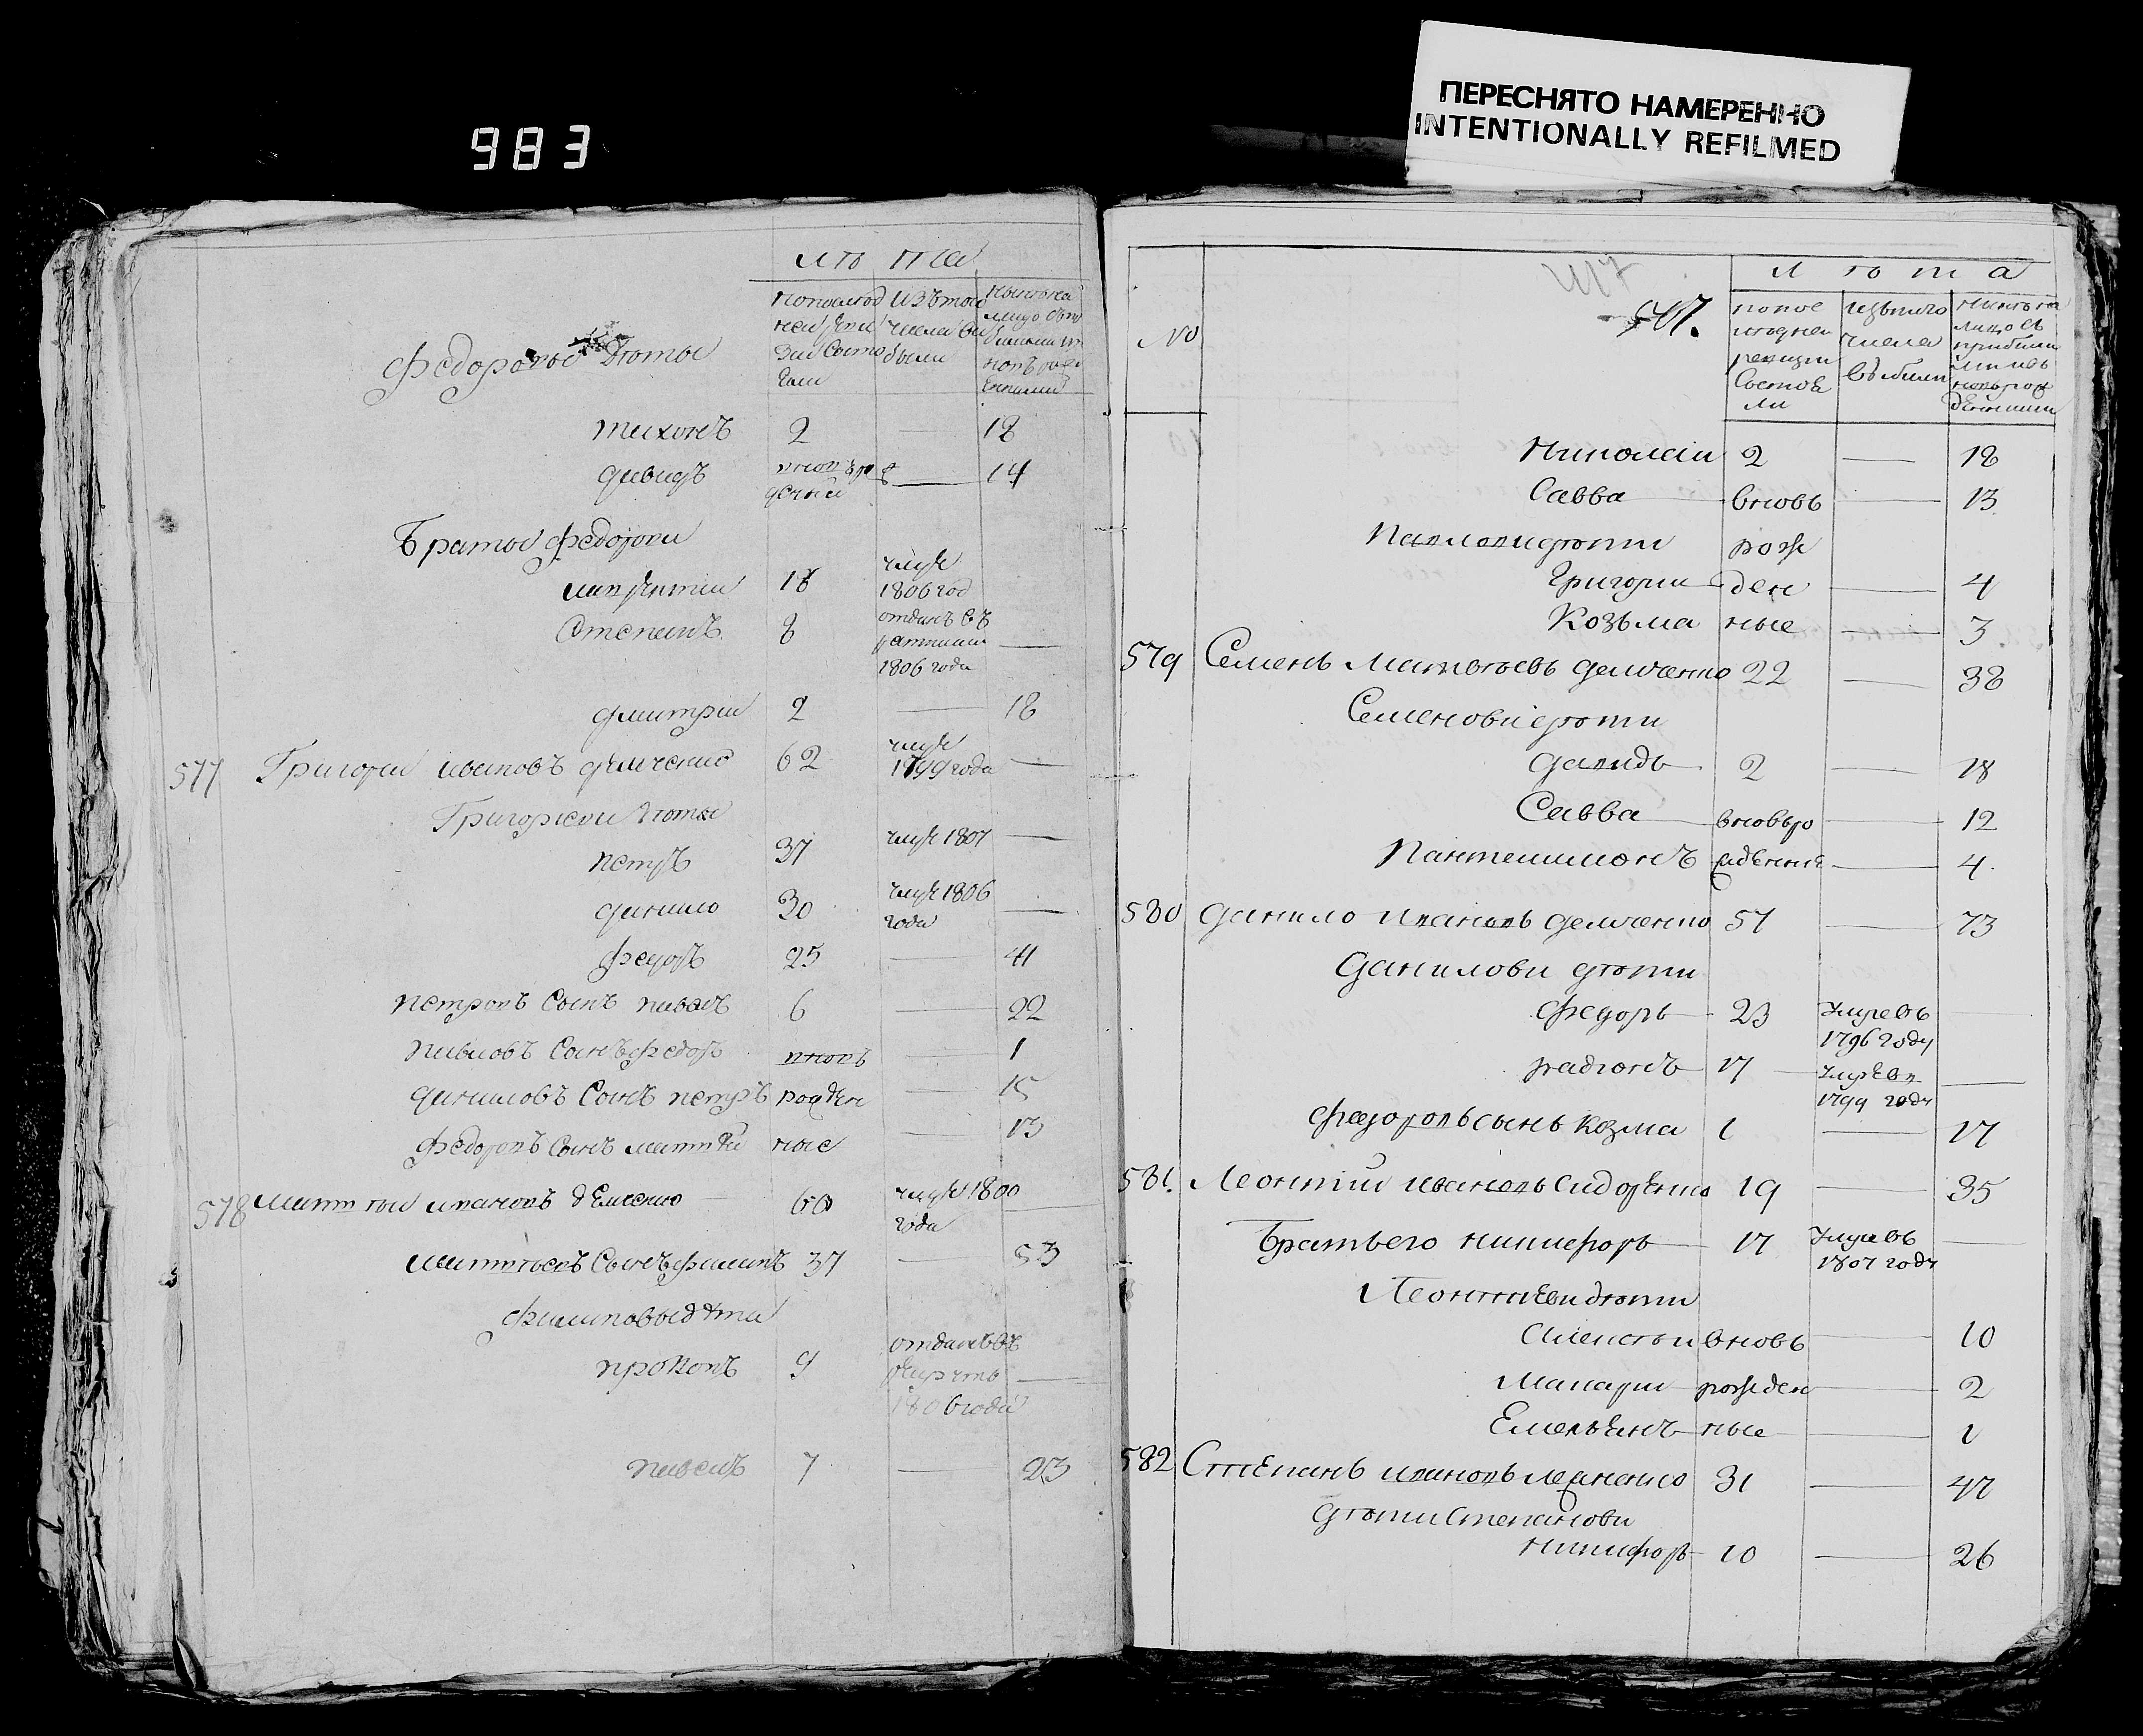 983
ПЕРЕСНЯТО НАМЕРЕННО
INTENTIONALLY REFILMED
лѣта
Федоровы дѣты
тихонъ 2 — 18
давидъ вновь рож 14
денный
Братья федоровы
лаврентии 18 умре
1806 год
Степанъ 8 отданъ въ
ратники —
1806 года
дмитрий 2 — 18
577 Григорий ивановъ демченко 62 умре
1799 года —
Григориевы дѣты
петръ 37 умре 1807 —
данило 30 умре 1806
года —
федоръ 25 — 41
петровъ Сынъ павелъ 6 — 22
павловъ Сынъ федоръ вновь — 1
даниловъ Сынъ петръ рожден — 15
федоровъ Сынъ матвѣй ные — 13
578 матвѣй ивановъ демченко 60 умре 1800
года
матвѣевъ Сынъ филипъ 37 — 53
филиповы дѣти
прокопъ 9 отданъ въ
рекруты —
1806 года
павелъ 7 — 23
№ лѣта
по пос
лѣдней
ревизии
Состоя
ли
изъ того
числа
выбыли
нынѣ на
лицо съ
прибыл
ими и въ
новь рож
денными
Николаи 2 — 18
Савва вновь — 13
Павлови дѣти рож
Григории ден — 4
Козьма ные — 3
579 Семенъ Матвѣевъ демченко 22 — 38
Семенови дѣти
давидъ 2 — 18
Савва вновь ро 12
Пантелимонъ жденние — 4
580 данило ивановъ демченко 57 — 73
Данилови дѣти
федоръ 23 Умре въ —
1796 году
радионъ 17 Умре въ —
1799 году
федоровъ сынъ козма 1 — 17
581. Леонтии ивановъ сидоренко 19 — 35
Братъ его никифоръ 17 Умре въ —
1807 году
Леонтиеви дѣти
алексѣи вновь — 10
макари рожден — 2
Емельянъ ные — 1
582 Степанъ ивановъ 31 — 47
дѣти Степанови
никифоръ 10 — 26